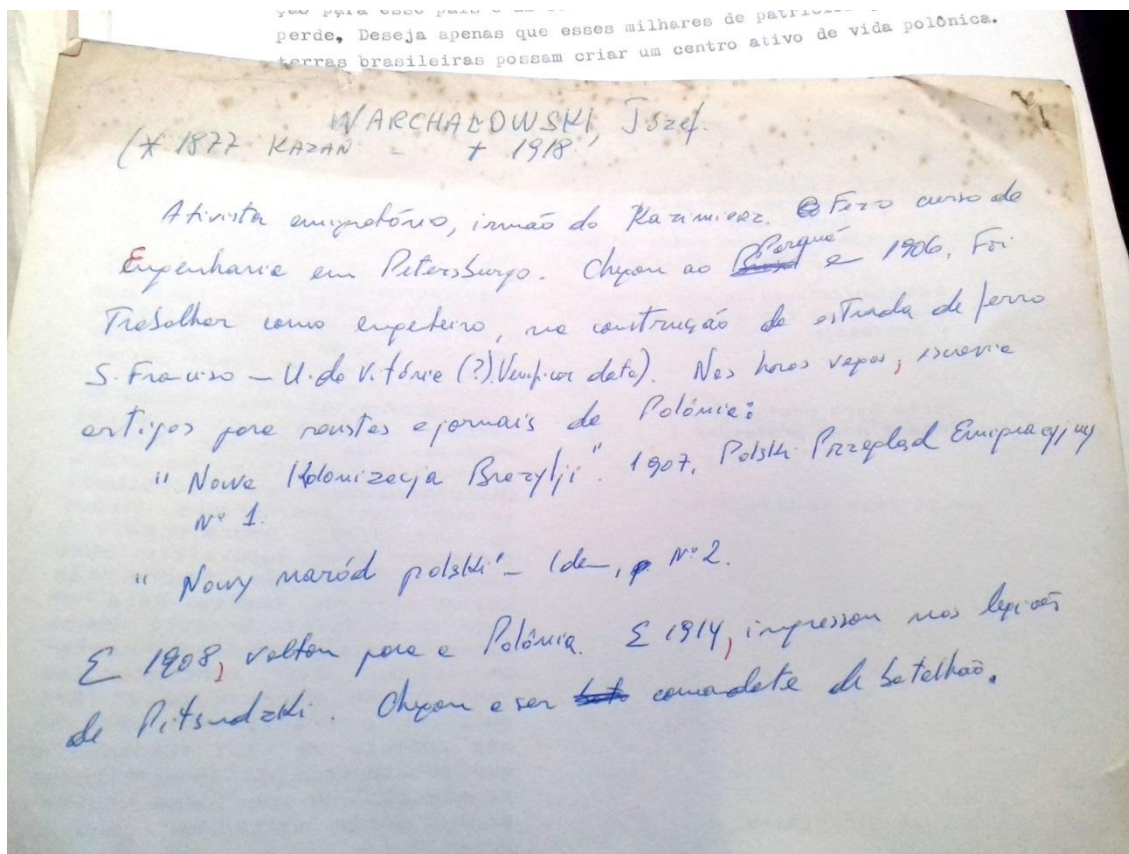 perde, Deseja apenas que esses milhares de
terras brasileiras possam criar um centro ativo de vida polônica.
WARCHAŁOWSKI, Józef.
(* 1877 KAZAN - + 1918
Ativista emigratório, irmão do Kazimierz. Fez o curso de
Engenharia em Petersburgo. Chegou ao Paraná e 1906. Foi
Trabalhar como empreiteiro, na construção da estrada de ferro
S. Francisco – U. da Vitória (?) Verificar data). Nas horas vagas, escrevia
artigos para revistas e jornais da Polônia:
"Nowa Kolonizacja Brazylji". 1907. Polski Przegląd Emigracyjny
Nº 1.
"Nowy naród polski" – Idem, Nº 2.
E 1908, voltou para a Polônia. E 1914, ingressou nas legiões
de Piłsudzki. Chegou a ser comandate de batalhão.